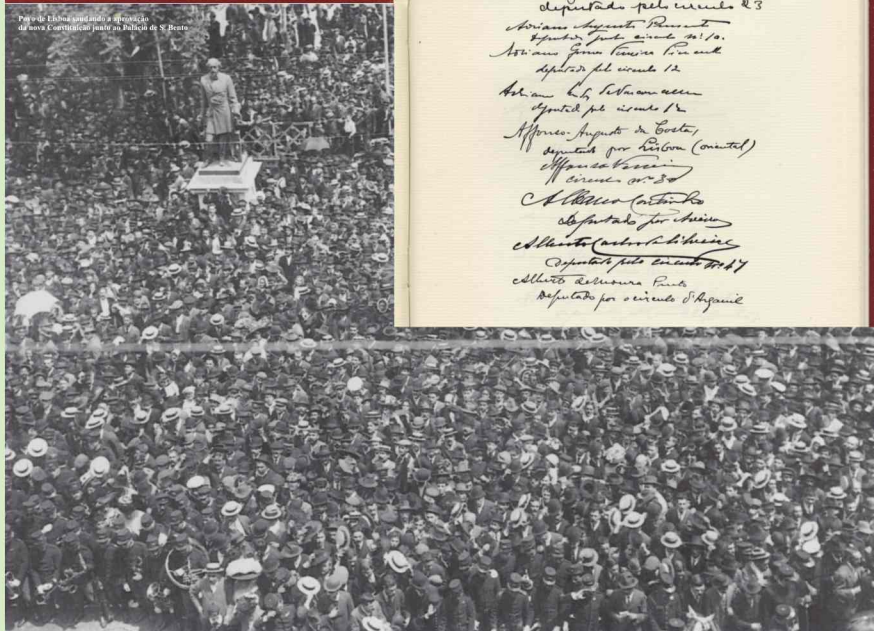 Povo de Lisboa saudando a aprovação
da nova Constituição junto ao Palácio de S. Bento
deputado pelo circulo 23
Adriano Augusto Pimenta
deputado pelo circulo nº 10.
Adriano Gomes Ferreira Pimenta
deputado pelo circulo 12
Adriano
deputado pelo circulo 12
Affonso Augusto da Costa,
deputado por Lisboa (oriental)
Affonso Ferreira
circulo nº 30
Albano Coutinho
Deputado por Aveiro
Alberto
Deputado pelo circulo nº 47
Alberto de Moura Pinto
Deputado por o circulo d'Arganil